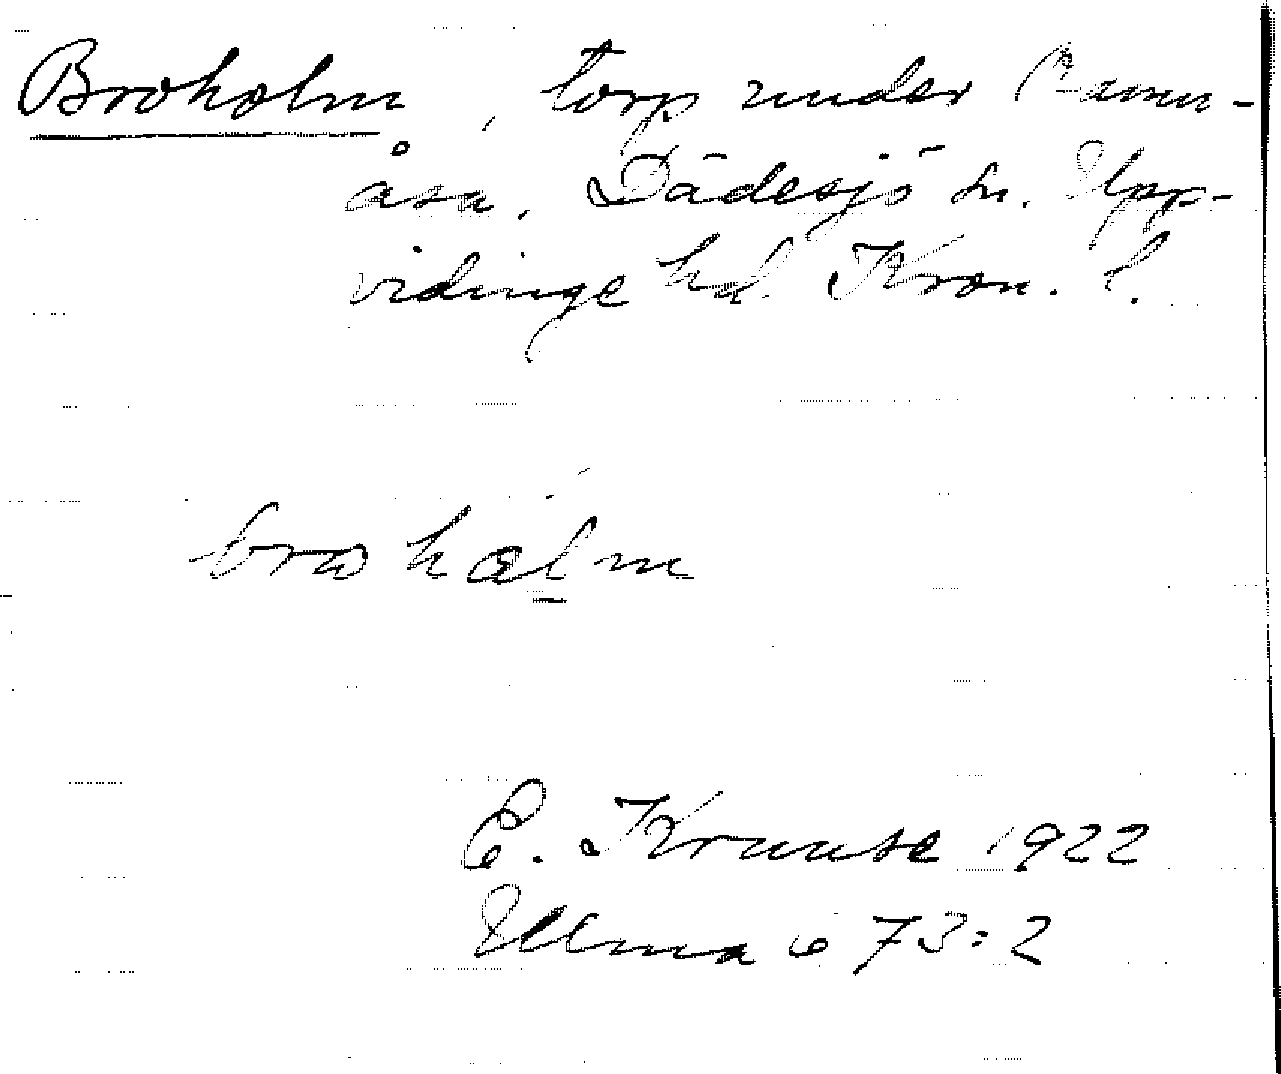 Broholm, torp under Ramn-
åsa, Dädesjö sn. Upp-
vidinge hd. Kron. l.
E. Kruuse 1922
Ulma 673:2